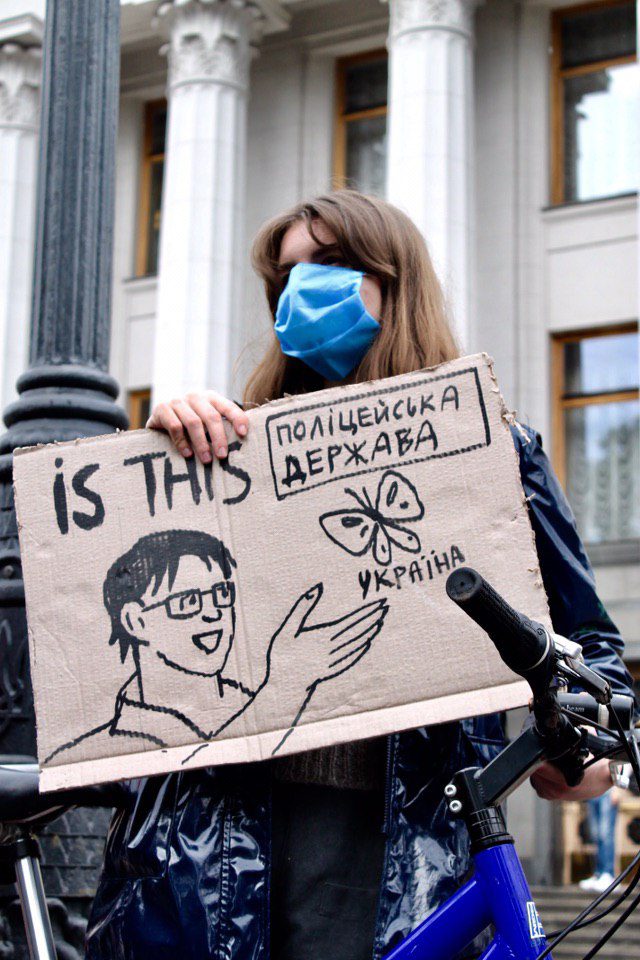 iS THIS
ПОЛІЦЕЙСЬКА
ДЕРЖАВА
УКРАЇНА